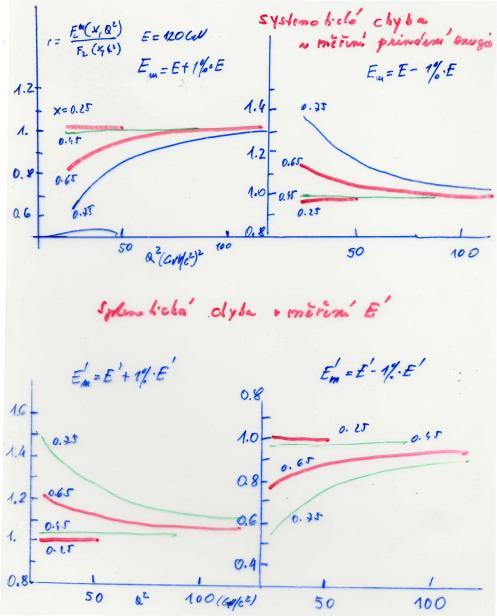 systematická chyba
v měření primární energie
r = F₂ᵐ(x,Q²) / F₂(x,Q²)
E = 120 GeV
Eₘ = E + 1%·E
Eₘ = E - 1%·E
1.2
1.
0.8
0.6
x = 0.25
0.45
0.65
0.75
50
100
Q² (GeV/c²)²
1.4
1.2
1.0
0.8
0.75
0.65
0.45
0.25
50
100
Systematická chyba v měření E'
E'ₘ = E' + 1%·E'
E'ₘ = E' - 1%·E'
1.6
1.4
1.2
1.
0.8
0.75
0.65
0.45
0.25
50
Q²
100 (GeV/c²)
0.8
1.0
0.8
0.6
0.4
0.25
0.45
0.65
0.75
50
100